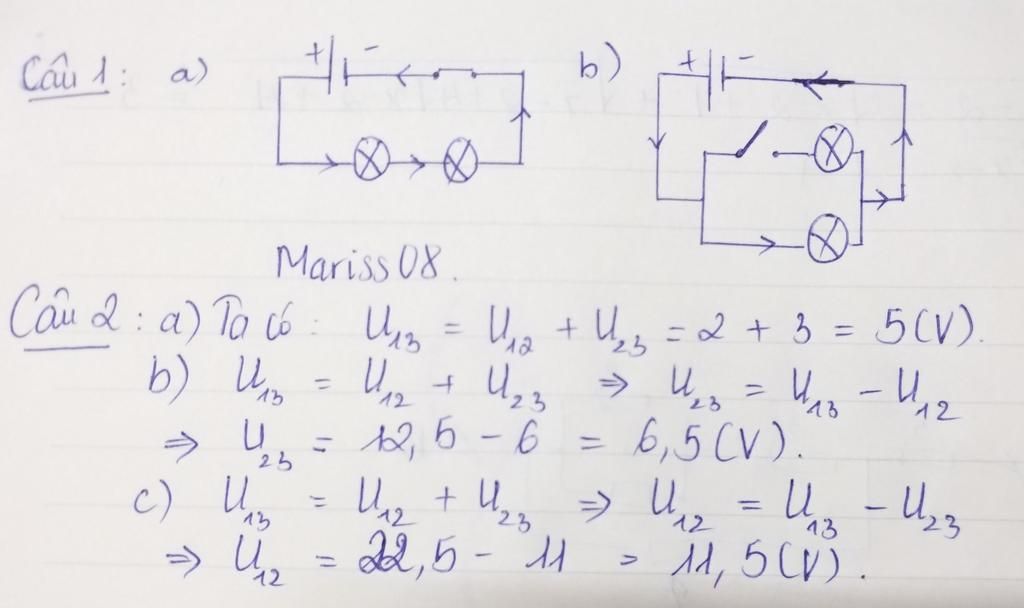 Câu 1: a) + - b) + -
Mariss 08.
Câu 2: a) Ta có: U₁₃ = U₁₂ + U₂₃ = 2 + 3 = 5(V).
b) U₁₃ = U₁₂ + U₂₃ ⇒ U₂₃ = U₁₃ - U₁₂
⇒ U₂₃ = 12,5 - 6 = 6,5(V).
c) U₁₃ = U₁₂ + U₂₃ ⇒ U₁₂ = U₁₃ - U₂₃
⇒ U₁₂ = 22,5 - 11 = 11,5(V).